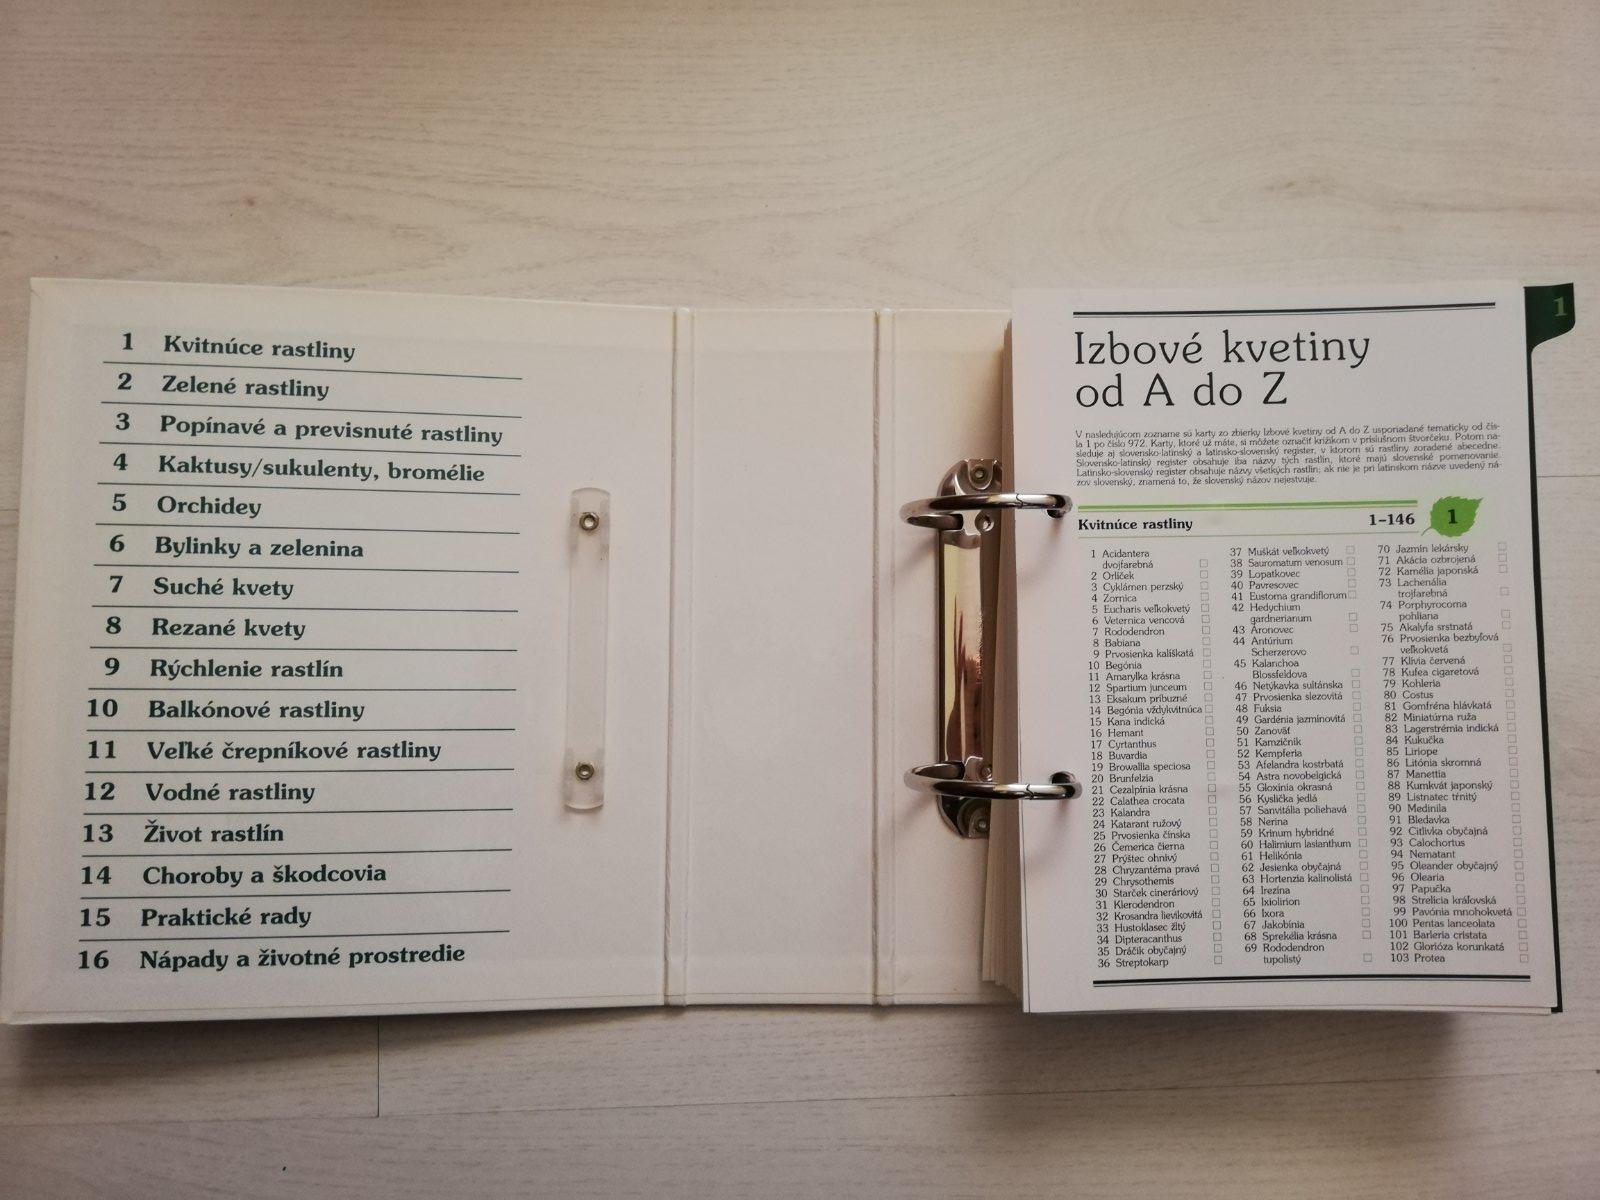 1 Kvitnúce rastliny
2 Zelené rastliny
3 Popínavé a previsnuté rastliny
4 Kaktusy/sukulenty, bromélie
5 Orchidey
6 Bylinky a zelenina
7 Suché kvety
8 Rezané kvety
9 Rýchlenie rastlín
10 Balkónové rastliny
11 Veľké črepníkové rastliny
12 Vodné rastliny
13 Život rastlín
14 Choroby a škodcovia
15 Praktické rady
16 Nápady a životné prostredie
1
Izbové kvetiny
od A do Z
V nasledujúcom zozname sú karty zo zbierky Izbové kvetiny od A do Z usporiadané tematicky od čís-
la 1 po číslo 972. Karty, ktoré už máte, si môžete označiť krížikom v príslušnom štvorčeku. Potom na-
sleduje aj slovensko-latinský a latinsko-slovenský register, v ktorom sú rastliny zoradené abecedne.
Slovensko-latinský register obsahuje iba názvy tých rastlín, ktoré majú slovenské pomenovanie.
Latinsko-slovenský register obsahuje názvy všetkých rastlín; ak nie je pri latinskom názve uvedený ná-
zov slovenský, znamená to, že slovenský názov nejestvuje.
Kvitnúce rastliny 1-146 1
1 Acidantera
dvojfarebná
2 Orlíček
3 Cyklámen perzský
4 Zornica
5 Eucharis veľkokvetý
6 Veternica vencová
7 Rododendron
8 Babiana
9 Prvosienka kališkatá
10 Begónia
11 Amarylka krásna
12 Spartium junceum
13 Eksakum príbuzné
14 Begónia vždykvitnúca
15 Kana indická
16 Hemant
17 Cyrtanthus
18 Buvardia
19 Browallia speciosa
20 Brunfelzia
21 Cezalpínia krásna
22 Calathea crocata
23 Kalandra
24 Katarant ružový
25 Prvosienka čínska
26 Čemerica čierna
27 Prýštec ohnivý
28 Chryzantéma pravá
29 Chrysothemis
30 Starček cineráriový
31 Klerodendron
32 Krosandra lievikovitá
33 Hustoklasec žltý
34 Dipteracanthus
35 Dráčik obyčajný
36 Streptokarp
37 Muškát veľkokvetý
38 Sauromatum venosum
39 Lopatkovec
40 Pavresovec
41 Eustoma grandiflorum
42 Hedychium
gardnerianum
43 Áronovec
44 Antúrium
Scherzerovo
45 Kalanchoa
Blossfeldova
46 Netýkavka sultánska
47 Prvosienka slezovitá
48 Fuksia
49 Gardénia jazmínovitá
50 Zanoväť
51 Kamzičník
52 Kempferia
53 Afelandra kostrbatá
54 Astra novobelgická
55 Gloxínia okrasná
56 Kyslička jedlá
57 Sanvitália poliehavá
58 Nerina
59 Krinum hybridné
60 Halimium lasianthum
61 Helikónia
62 Jesienka obyčajná
63 Hortenzia kalinolistá
64 Irezína
65 Ixiolirion
66 Ixora
67 Jakobínia
68 Sprekélia krásna
69 Rododendron
tupolistý
70 Jazmín lekársky
71 Akácia ozbrojená
72 Kamélia japonská
73 Lachenália
trojfarebná
74 Porphyrocoma
pohliana
75 Akalyfa srstnatá
76 Prvosienka bezbyľová
veľkokvetá
77 Klívia červená
78 Kufea cigaretová
79 Kohleria
80 Costus
81 Gomfréna hlávkatá
82 Miniatúrna ruža
83 Lagerstrémia indická
84 Kukučka
85 Liriope
86 Litónia skromná
87 Manettia
88 Kumkvát japonský
89 Listnatec tŕnitý
90 Medinila
91 Bledavka
92 Citlivka obyčajná
93 Calochortus
94 Nematant
95 Oleander obyčajný
96 Olearia
97 Papučka
98 Strelícia kráľovská
99 Pavónia mnohokvetá
100 Pentas lanceolata
101 Barleria cristata
102 Glorióza korunkatá
103 Protea